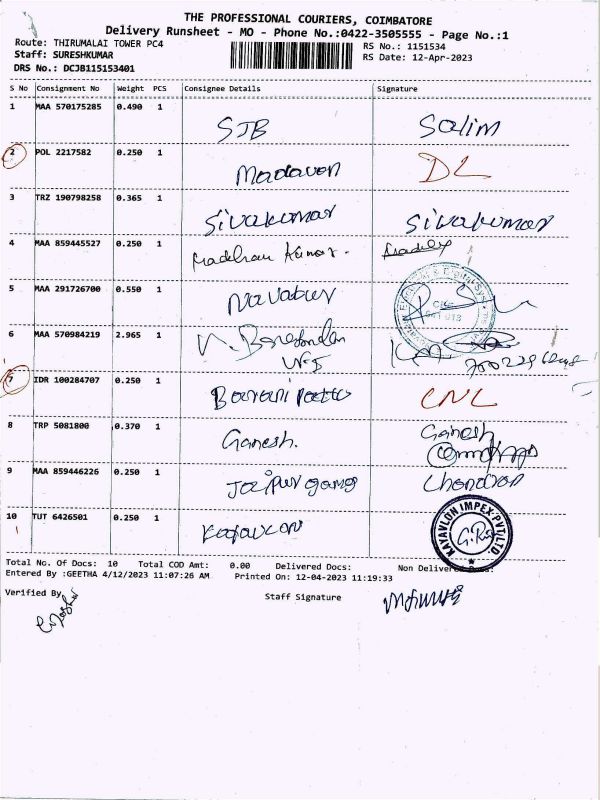 THE PROFESSIONAL COURIERS, COIMBATORE
Delivery Runsheet - MO - Phone No.:0422-3505555 - Page No.:1
Route: THIRUMALAI TOWER PC4
RS No.: 1151534
Staff: SURESHKUMAR
RS Date: 12-Apr-2023
DRS No.: DCJB115153401
S No Consignment No Weight PCS Consignee Details Signature
1 MAA 570175285 0.490 1 STB Salim
2 POL 2217582 0.250 1 Madavan DL
3 TRZ 190798258 0.365 1 Sivakumar Sivakumar
4 MAA 859445527 0.250 1 Madhan Kumar.
5 MAA 291726700 0.550 1
6 MAA 570984219 2.965 1
7 IDR 100284707 0.250 1 CNL
8 TRP 5081800 0.370 1 Ganesh. Ganesh
9 MAA 859446226 0.250 1 Jaipur Chandran
10 TUT 6426501 0.250 1 KAYAVLON IMPEX PVT LTD.
Total No. Of Docs: 10 Total COD Amt: 0.00 Delivered Docs: Non Delivered Docs:
Entered By :GEETHA 4/12/2023 11:07:26 AM Printed On: 12-04-2023 11:19:33
Verified By
Staff Signature